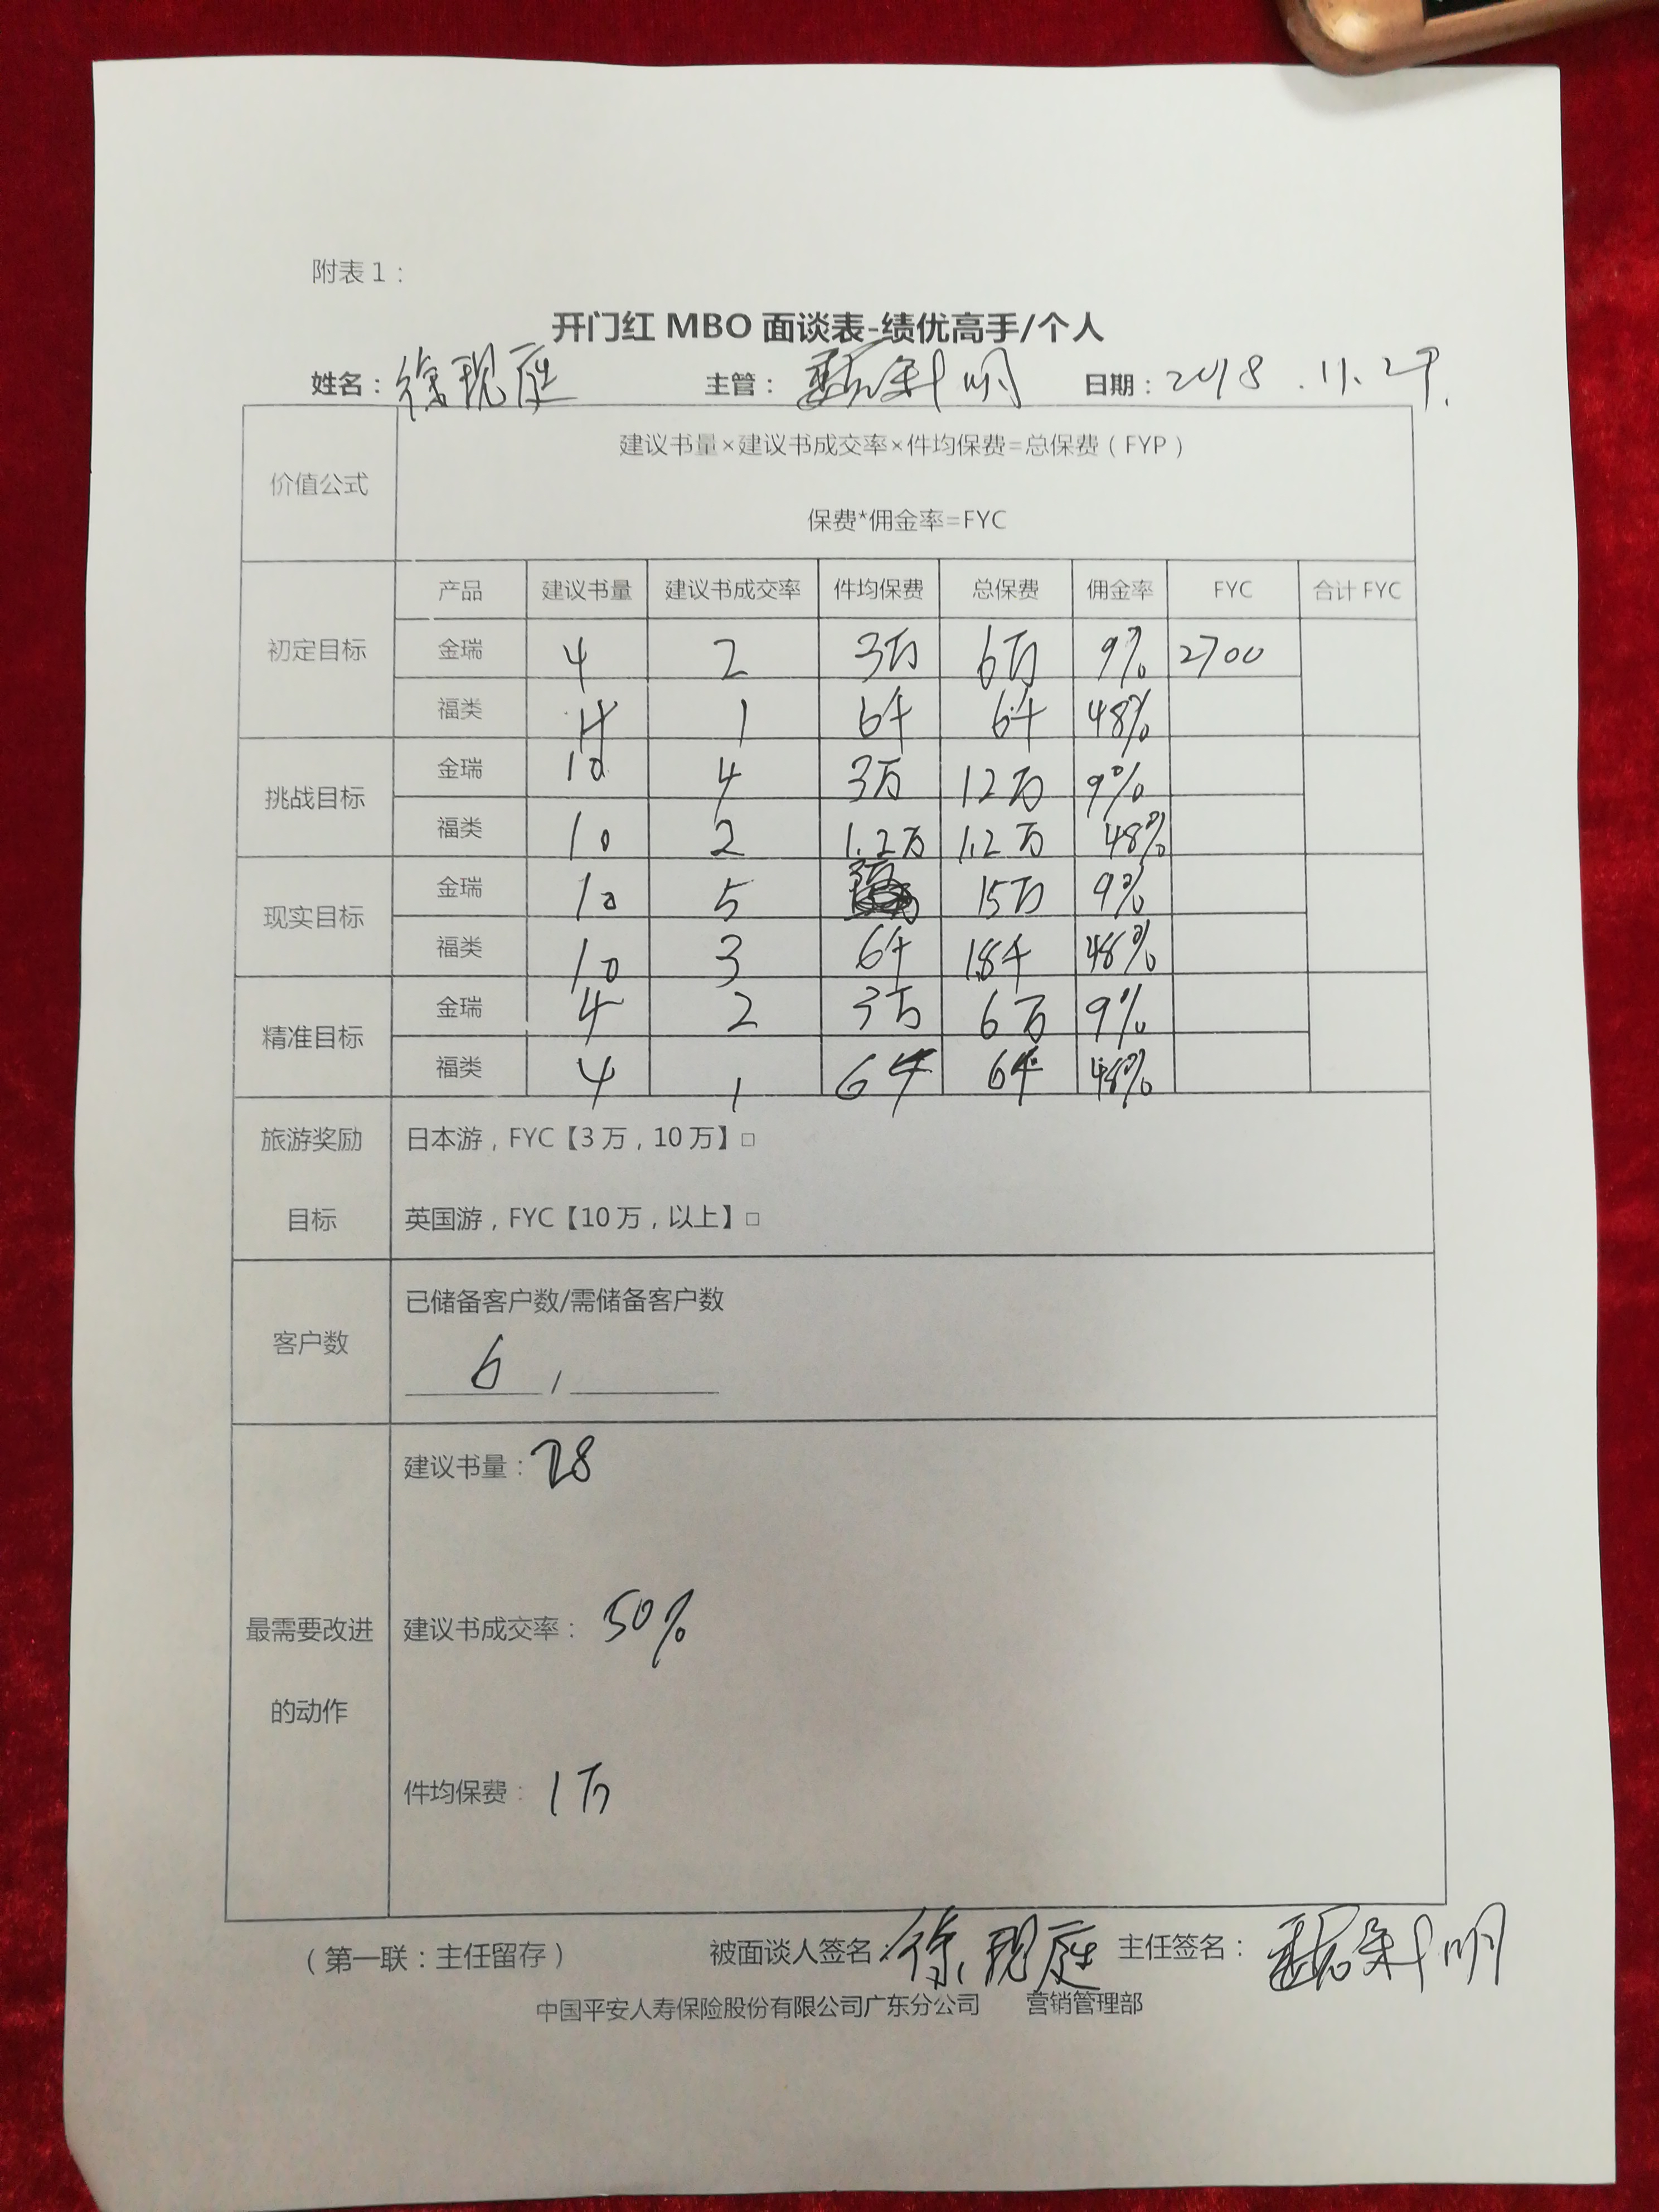 附表1：
开门红 MBO 面谈表-绩优高手/个人
姓名：徐现庭 主管： 明 日期：2018.11.29.
价值公式
建议书量×建议书成交率×件均保费=总保费（FYP）
保费*佣金率=FYC
初定目标 产品 建议书量 建议书成交率 件均保费 总保费 佣金率 FYC 合计 FYC
金瑞 4 2 3万 6万 9% 2700
福类 4 1 6千 6千 48%
挑战目标 金瑞 10 4 3万 12万 9%
福类 10 2 1.2万 1.2万 48%
现实目标 金瑞 10 5 15万 9%
福类 10 3 6千 18千 48%
精准目标 金瑞 4 2 3万 6万 9%
福类 4 1 6千 6千 48%
旅游奖励
目标
日本游，FYC【3万，10万】□
英国游，FYC【10万，以上】□
客户数
已储备客户数/需储备客户数
6 /
最需要改进
的动作
建议书量：28
建议书成交率： 50%
件均保费： 1万
（第一联：主任留存） 被面谈人签名：徐现庭 主任签名： 明
中国平安人寿保险股份有限公司广东分公司 营销管理部